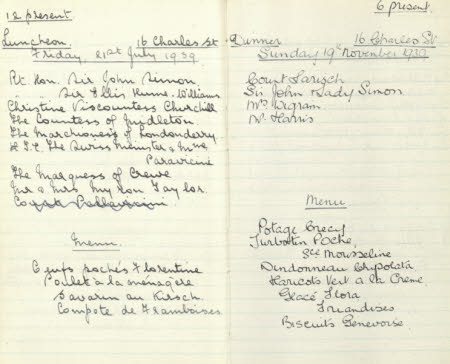 12 present
Luncheon. 16 Charles St
Friday, 21st July 1939
Rt. Hon. Sir John Simon.
" " Sir Ellis Hume-Williams
Christine Viscountess Churchill
The Countess of Midleton
The Marchioness of Londonderry
H.E. The Swiss Minister & Mme
Paravicini
The Marquess of Crewe
Mr & Mrs Mylon Taylor.
Menu.
Oeufs pochés Florentine
Poulet à la ménagère
Savarin au Kirsch.
Compote de Framboises.
6 present.
Dinner 16 Charles St.
Sunday 19th November 1939
Court Larisch
Sir John & Lady Simon
Mrs Wigram
Mr Harris
Menu
Potage Crecy
Turbotin Poché,
Sce Mousseline
Dindonneau Chipolata
Haricots Vert a la Creme
Glacé Flora
Friandises
Biscuits Genevoise.